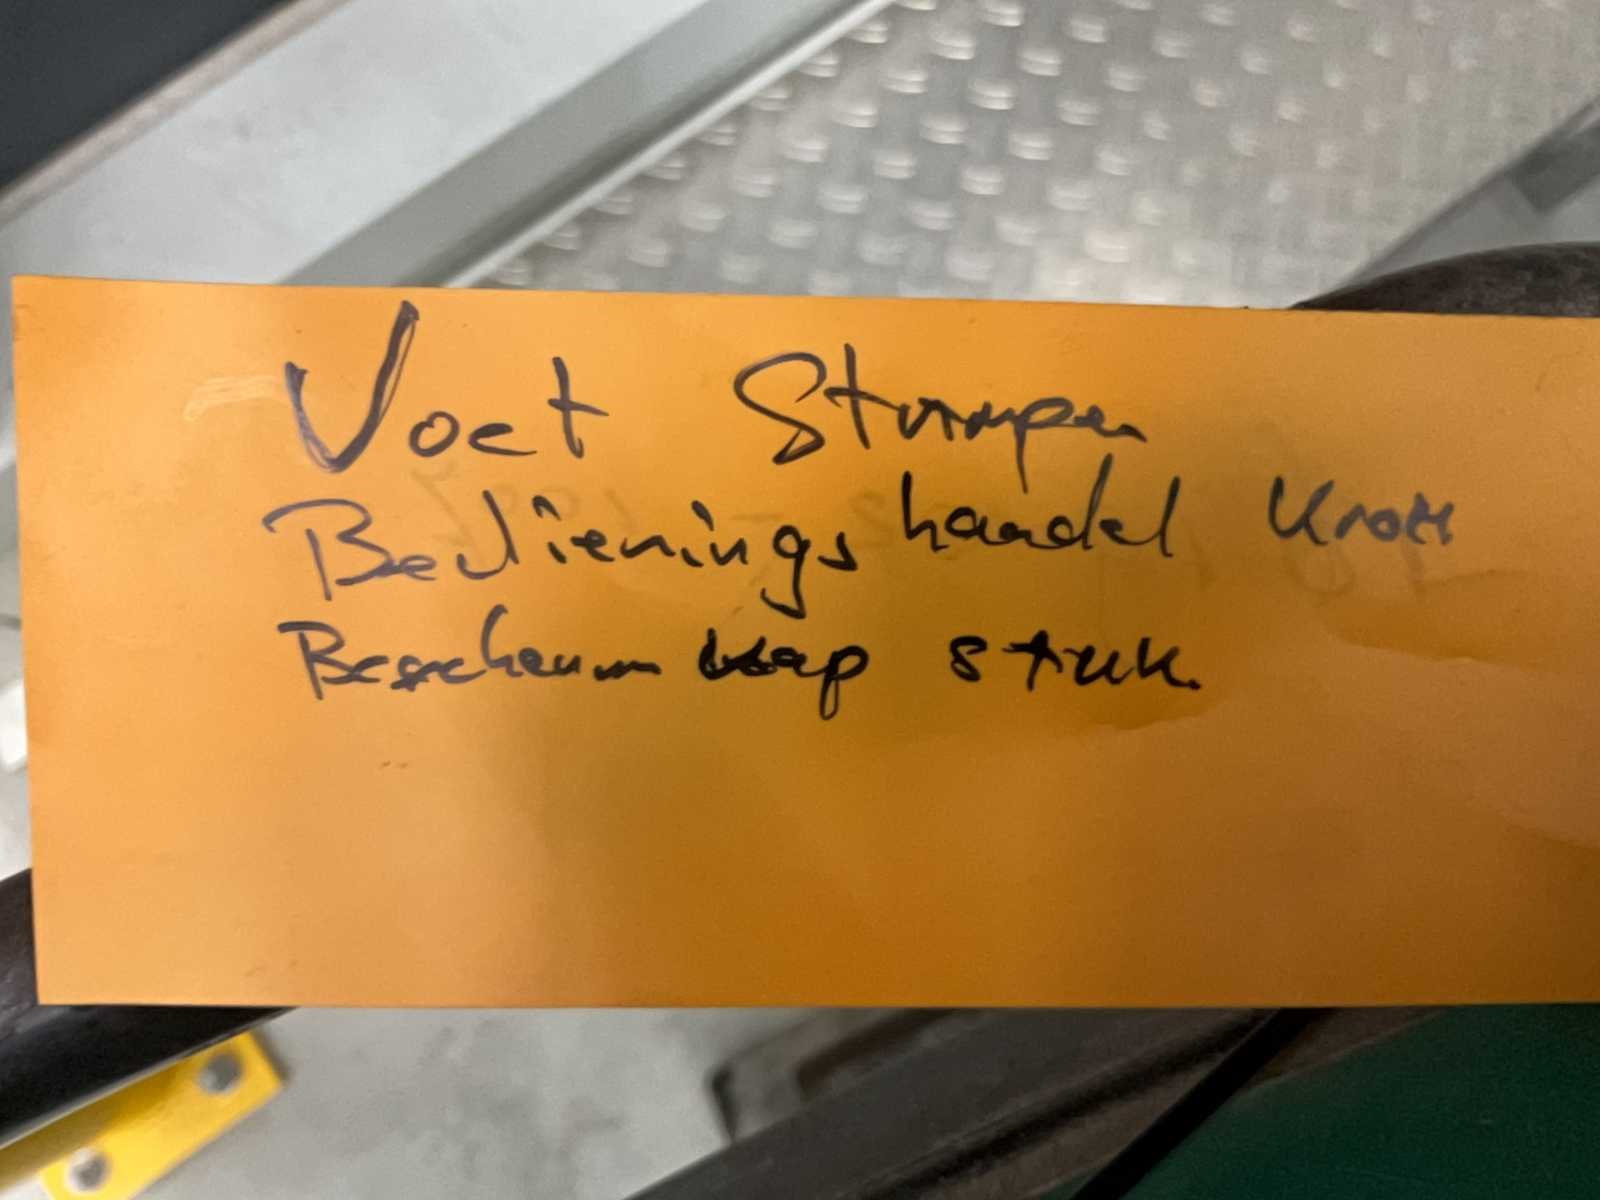 Voet Stompen
Bedieningshandel
Bescherm kap stuk.